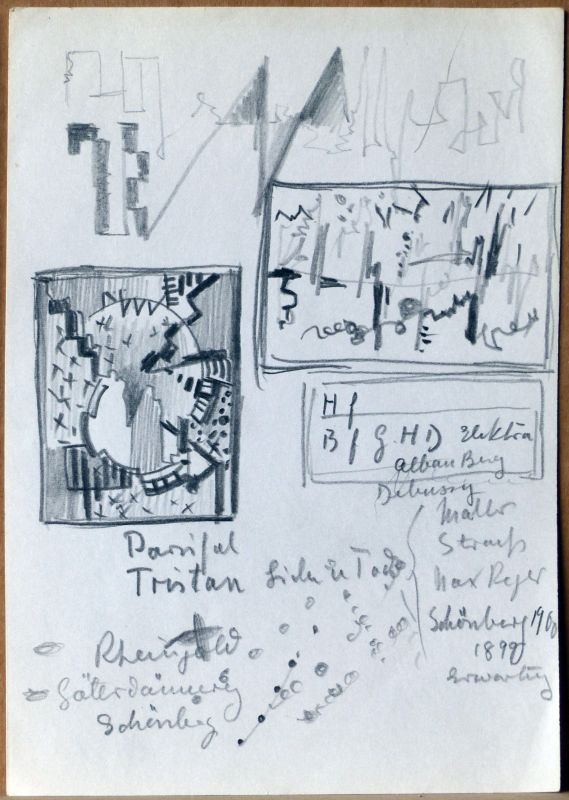 H f
B f G. H D Elektra
Alban Berg
Debussy
Mahler
Strauß
Max Reger
Schönberg
1899
Erwartung
Parsifal
Tristan Liebe u Tod
Rheingold
Götterdämmerung
Schönberg